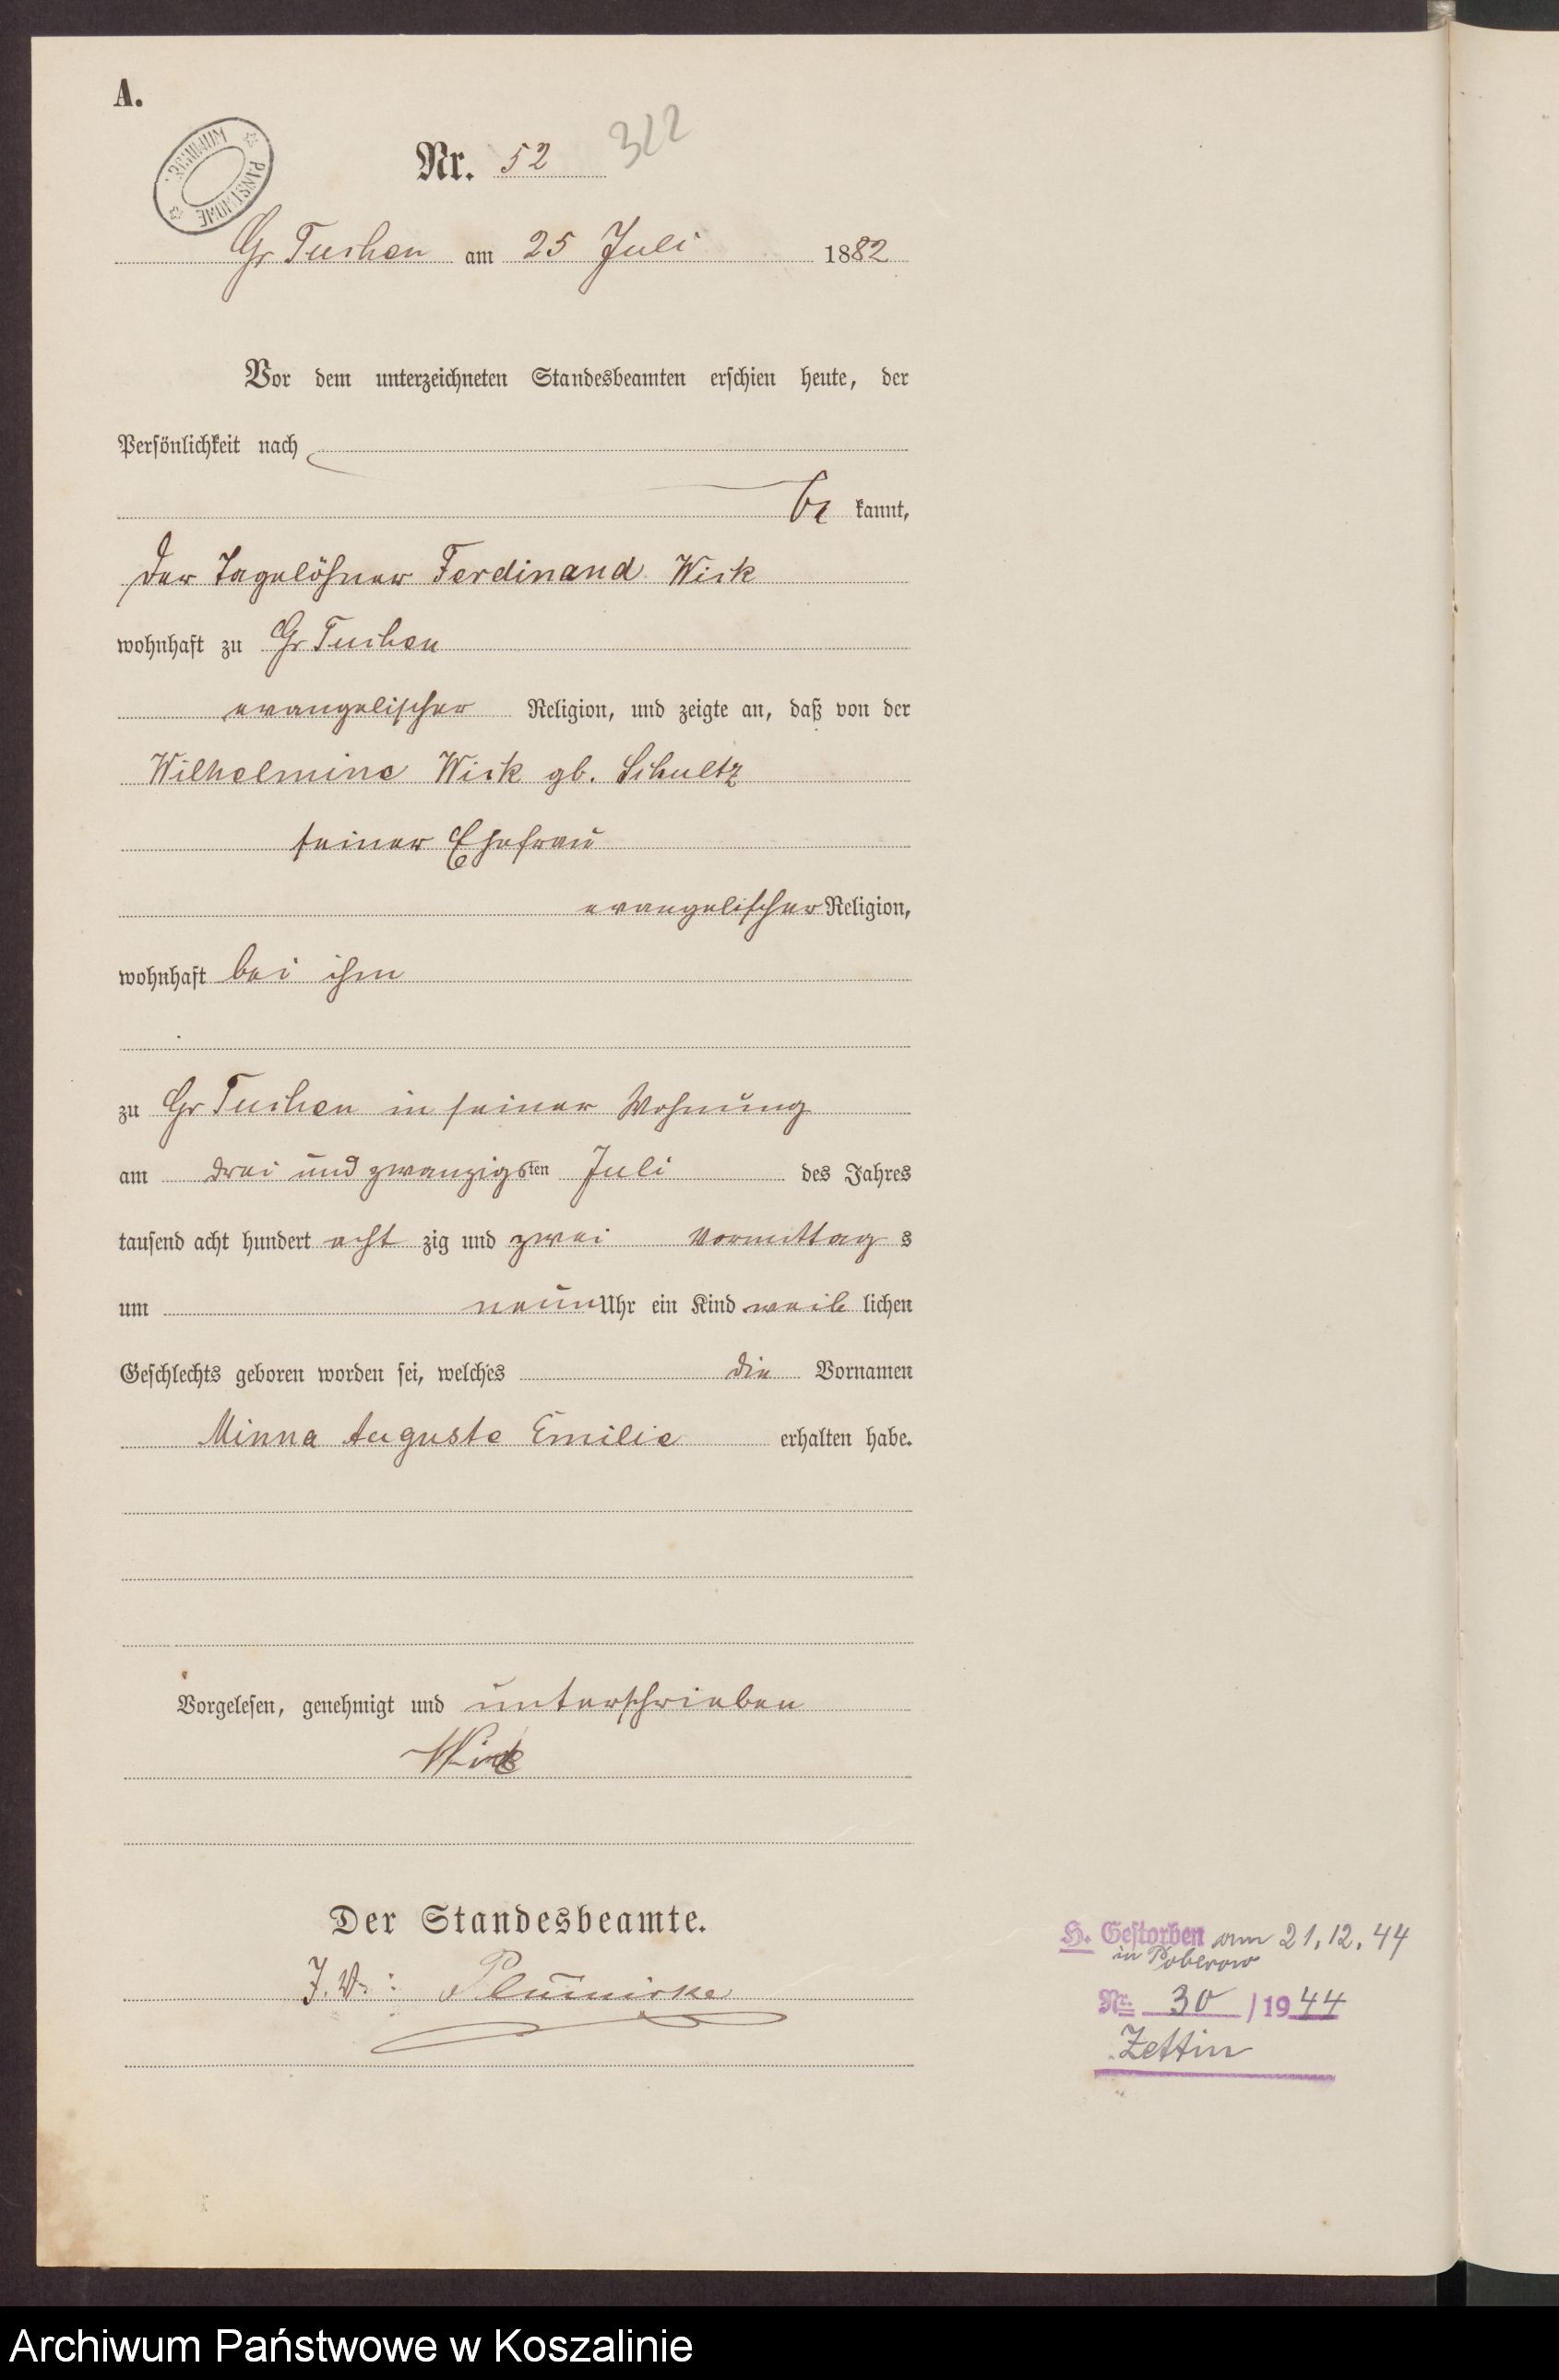 A.
ARCHIWUM PAŃSTWOWE
Nr. 52 322
Gr Tuchen am 25 Juli 1882
Vor dem unterzeichneten Standesbeamten erschien heute, der
Persönlichkeit nach
be kannt,
der Tagelöhner Ferdinand Wick
wohnhaft zu Gr Tuchen
evangelischer Religion, und zeigte an, daß von der
Wilhelmine Wick gb. Schultz
seiner Ehefrau
evangelischer Religion,
wohnhaft bei ihm
zu Gr Tuchen in seiner Wohnung
am drei und zwanzigsten Juli des Jahres
tausend acht hundert acht zig und zwei Vormittag s
um neun Uhr ein Kind weib lichen
Geschlechts geboren worden sei, welches die Vornamen
Minna Auguste Emilie erhalten habe.
Vorgelesen, genehmigt und unterschrieben
Wick
Der Standesbeamte.
J. V.:
H. Gestorben am 21.12.44
in Poberow
Nr. 30 / 1944
Zettin
Archiwum Państwowe w Koszalinie